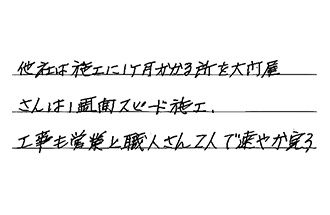 他社は施工に1ヶ月かかる所を大門屋
さんは1週間スピード施工、
工事も営業と職人さん2人で速やか完了